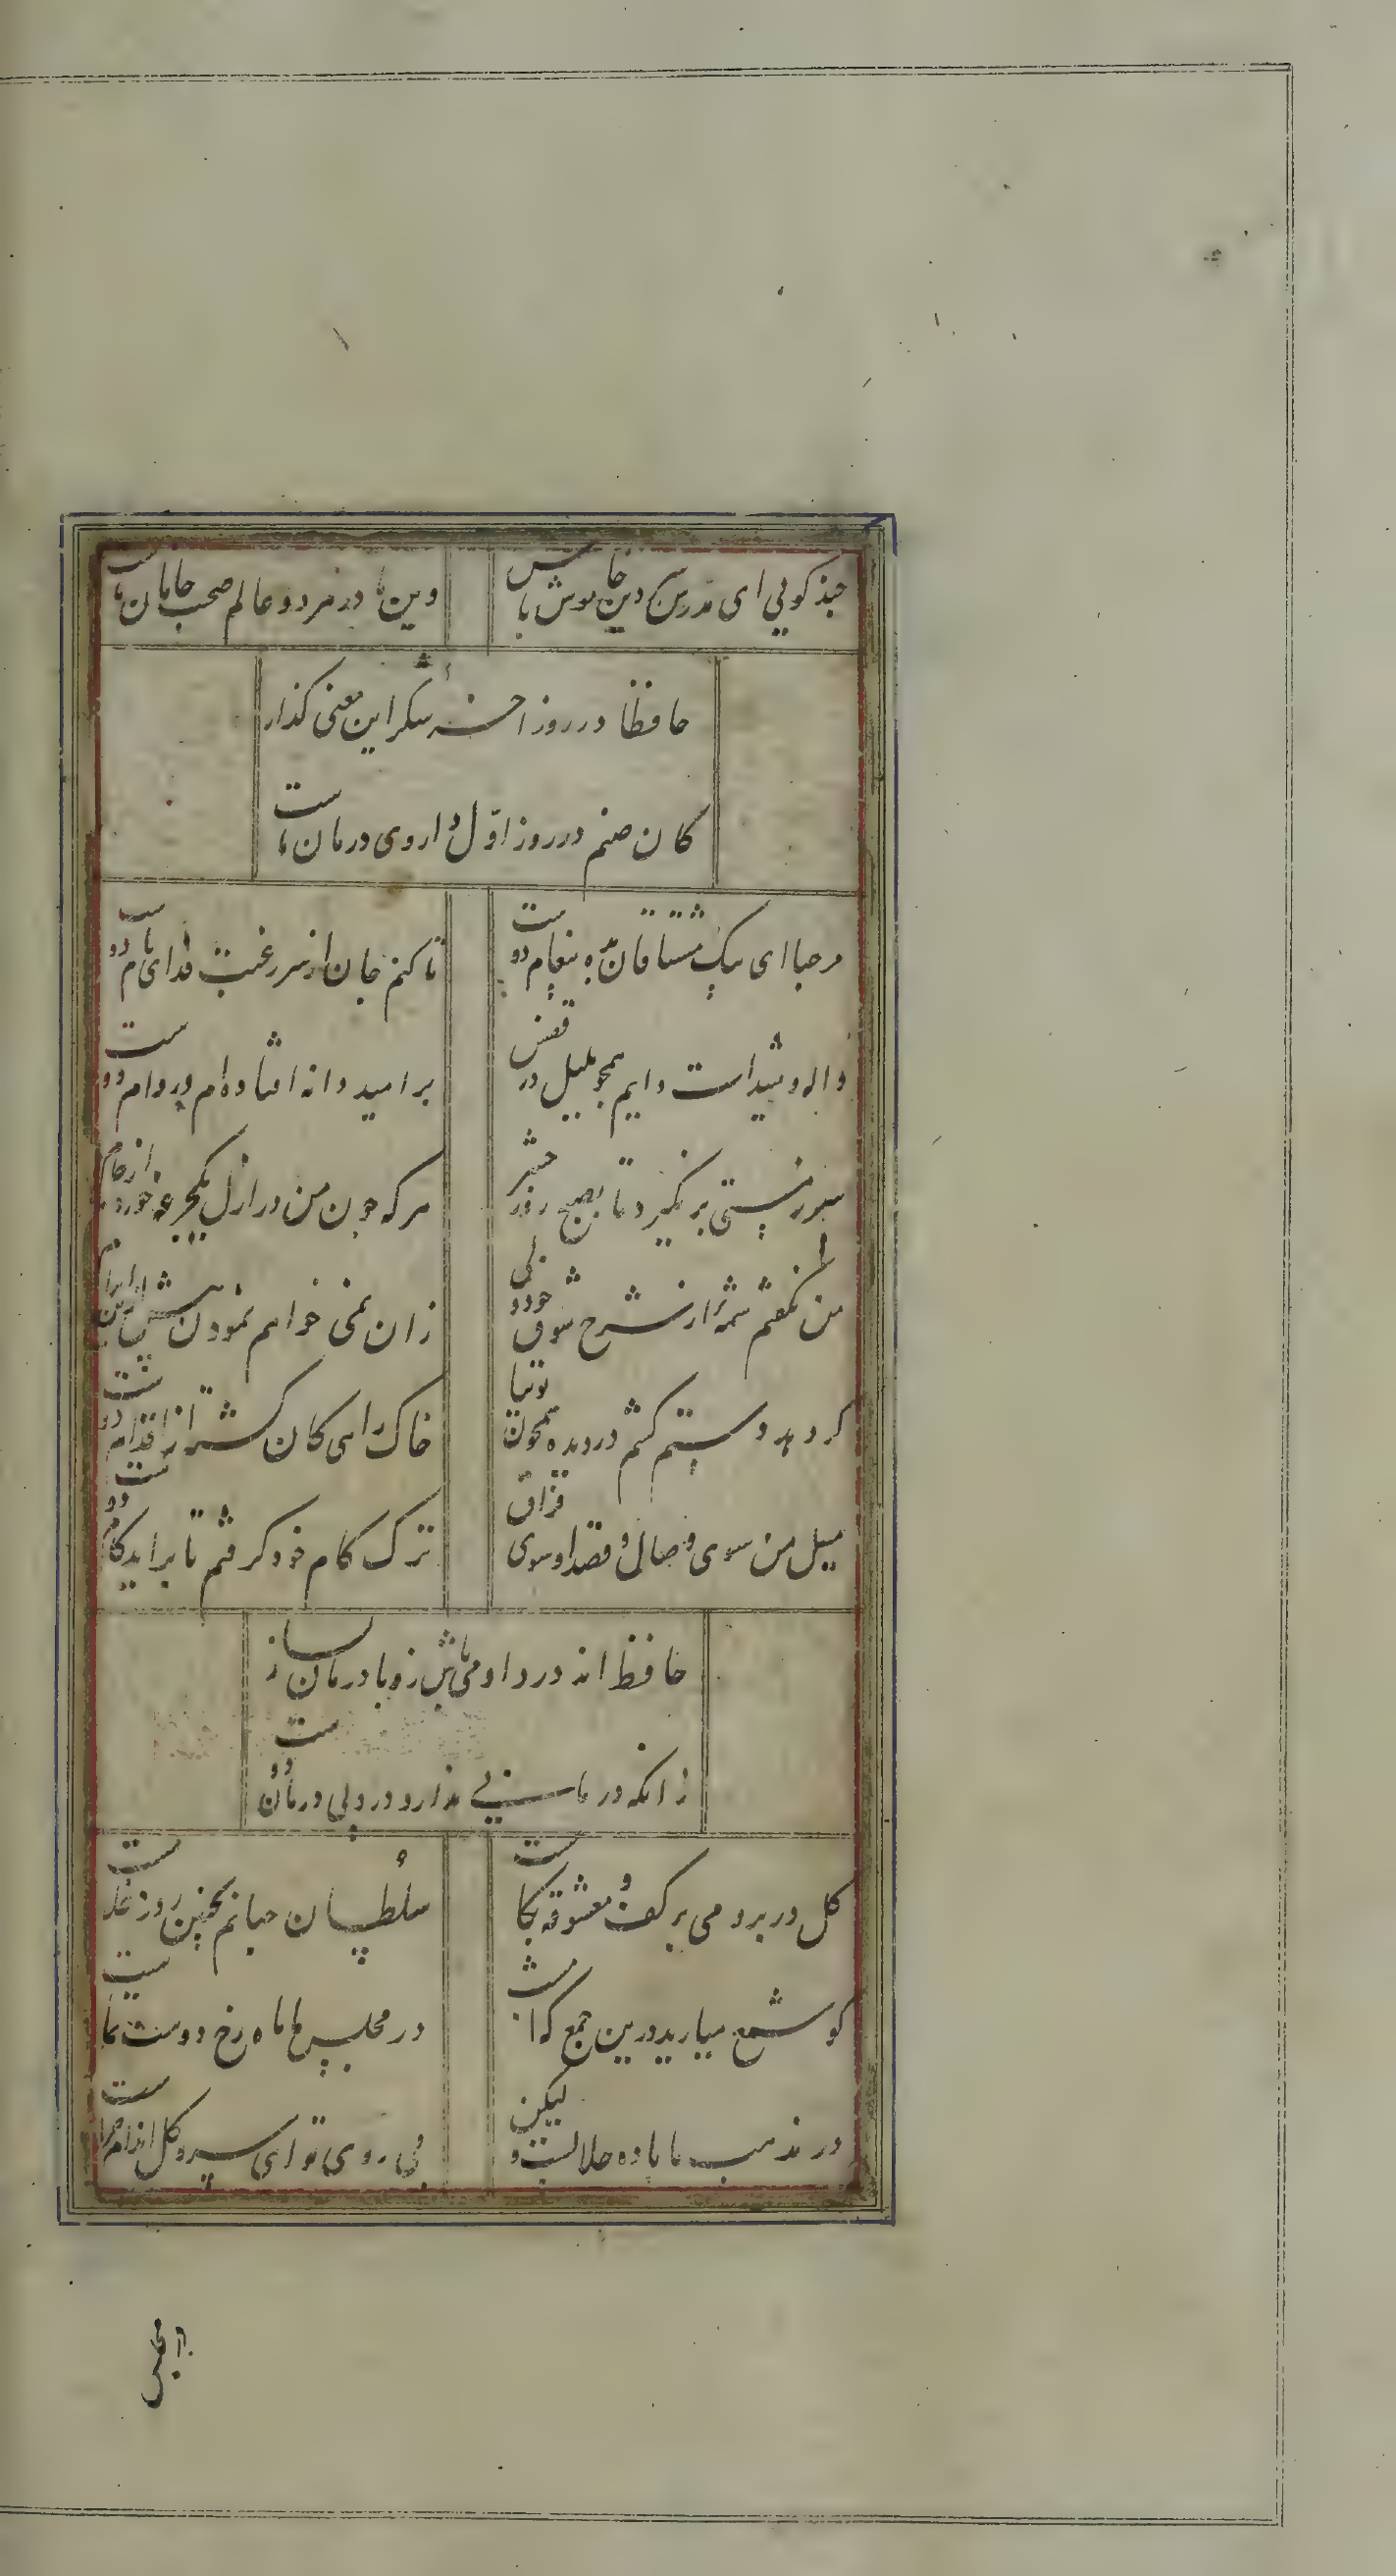 چند کویی ای مدرس دین خاموش باش
دین ما در هر دو عالم صحبت جانان ماست
حافظا در روز اخر شکر این معنی کذار
کان صنم در روز اول داروی درمان ماست
مرحبا ای پیک مشتاقان بده پیغام دوست
تا کنم جان از سر رغبت فدای نام دوست
واله و شیداست دایم همچو بلبل در قفس
بر امید دانه افتاده ام در دام دوست
سر ز مستی بر نکیرد تا بصبح روز حشر
هر که چون من در ازل یکجرعه خورد از جام
من نکفتم شمه از شرح شوق خود ولی
زان نمی خواهم نمودن بیش ازین ابرام
کر دهد دستم کشم در دیده همچون توتیا
خاک راهی کان مشرف از اقدام دوست
میل من سوی وصال و قصد او سوی فراق
ترک کام خود کرفتم تا براید کام دوست
حافظ اندر درد او می باش و با درمان مساز
زانکه درمانی ندارد درد بی درمان دوست
کل در بر و می بر کف و معشوقه بکامست
سلطان جهانم بچنین روز غلامست
کو شمع میارید درین جمع که امشب
در مجلس ما ماه رخ دوست تمامست
در مذهب ما باده حلالست و لیکن
بی روی تو ای سرو کل اندام حرامست
در مجلس